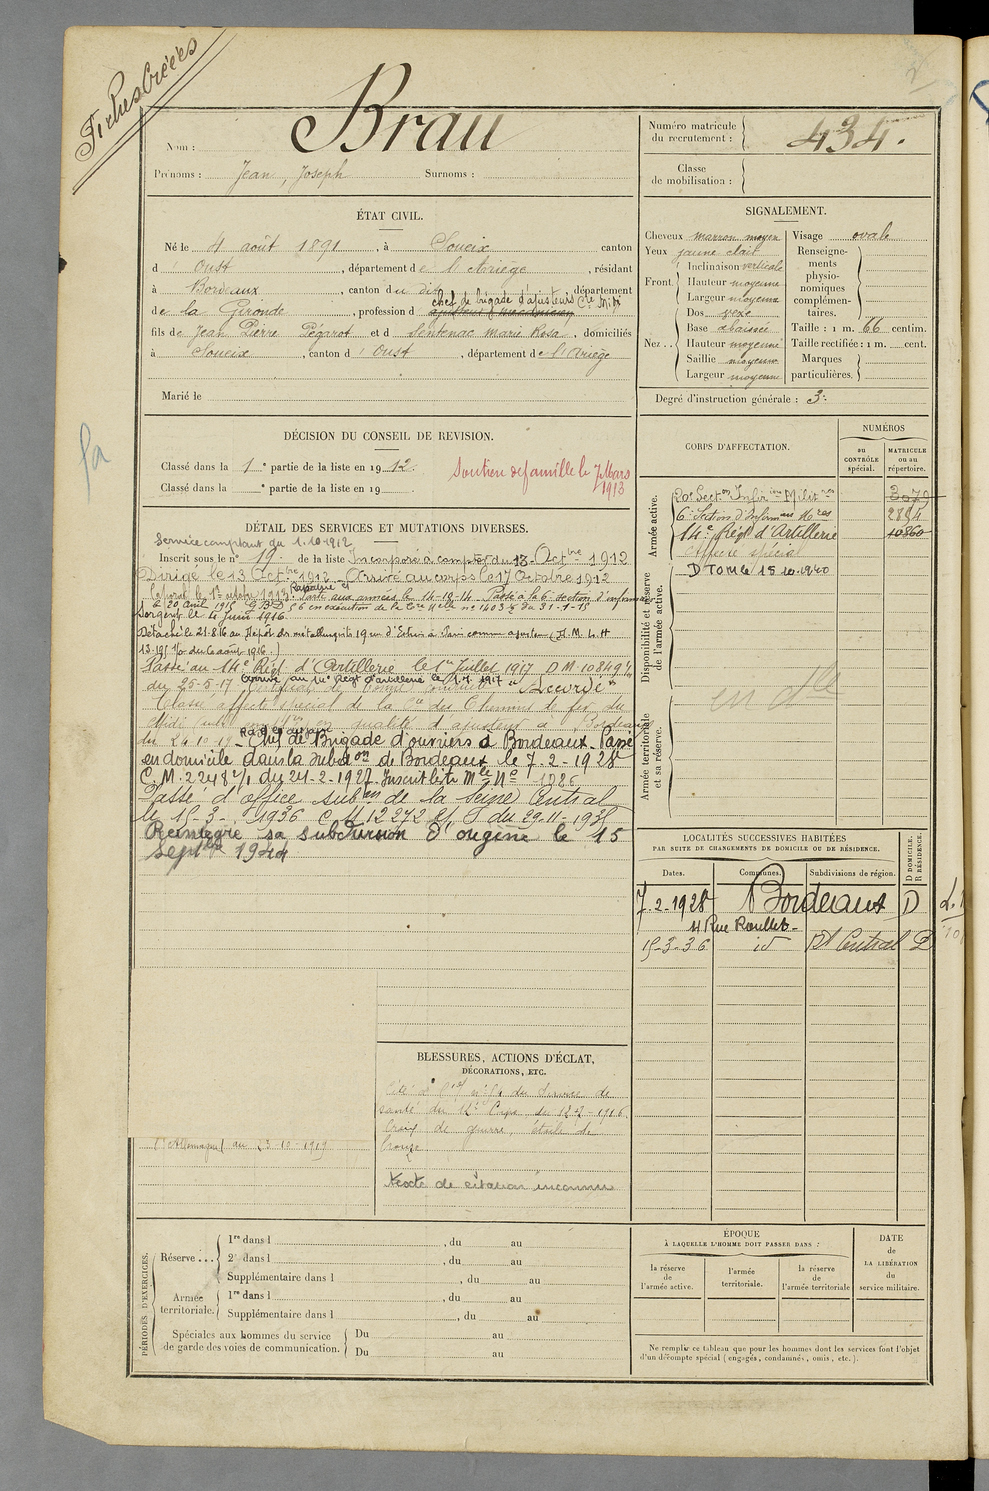 Fiches Créées
Nom : Brau
Prénoms : Jean, Joseph Surnoms :
Numéro matricule du recrutement : 434.
Classe de mobilisation :
ÉTAT CIVIL.
Né le 4 août 1891, à Soueix canton
d' Oust, département de l'Ariège, résidant
à Bordeaux, canton du dit département
chef de brigade d'ajusteurs Cie Midi
de la Gironde, profession d ajusteur mécanicien
fils de Jean Pierre Pégarot et d Sentenac Marie Rosa, domiciliés
à Soueix, canton d' Oust, département de l'Ariège
Marié le
SIGNALEMENT.
Cheveux marron moyen
Yeux jaune clair
Front. Inclinaison verticale
Hauteur moyenne
Largeur moyenne
Nez.. Dos vexe
Base abaissée
Hauteur moyenne
Saillie moyenne
Largeur moyenne
Visage ovale
Renseignements physionomiques complémentaires.
Taille : 1 m. 66 centim.
Taille rectifiée : 1 m. cent.
Marques particulières.
Degré d'instruction générale : 3.
DÉCISION DU CONSEIL DE REVISION.
Classé dans la 1e partie de la liste en 1912.
Classé dans la e partie de la liste en 19
Soutien de famille le 7 Mars 1913
DÉTAIL DES SERVICES ET MUTATIONS DIVERSES.
Service comptant du 1.10.1912
Inscrit sous le n° 19 de la liste Incorporé à compter du 13 Octbre 1912
Dirigé le 13 Octbre 1912 Arrivé au corps le 17 Octobre 1912
Caporal le 1er octobre 1913 Passé aux armées le 14-18-14 Passé à la 6e section d'infirmiers
le 20 avril 1915 en exécution de la Cre Melle n° 1403 du 31-1-15
Sergent le 4 Juin 1916
Détaché le 21.8.16 au Dépôt des métallurgistes à Paris comme ajusteur (A.M. L.H
13.195 1/0 du 6 août 1916.)
Passé au 14e Régt d'Artillerie le 1er Juillet 1917 DM 10849
du 25-5-17 Arrivé au 14e Régt d'artillerie le 1.7.1917 Certificat de bonne conduite "Accordé"
Classé affecté spécial de la Cie des Chemins de fer du
Midi en qualité d'ajusteur à Bordeaux
du 24 10 19 Chef de Brigade d'ouvriers à Bordeaux. Passé
en domicile dans la subdon de Bordeaux le 7-2-1928
C.M. 2248 1/1 du 21-2-1927. Inscrit liste Mle N° 1086
Passé d'office subon de la Seine Central
le 15-3-1936 C M 12272 du 29-11-1935
Réintègre sa subdivision d'origine le 15
septbre 1944
l'Allemagne) au 23-10-1919
CORPS D'AFFECTATION.
NUMÉROS
au CONTRÔLE spécial.
MATRICULE ou au répertoire.
Armée active.
20e Secton Infirières Militres 3079
6e Section d'Infirmers Mres 2894
14e Régt d'Artillerie 10860
Affecté spécial
D Tomle 15 10 1940
Disponibilité et réserve de l'armée active.
Armée territoriale et sa réserve.
en dlle
LOCALITÉS SUCCESSIVES HABITÉES
PAR SUITE DE CHANGEMENTS DE DOMICILE OU DE RÉSIDENCE.
Dates. Communes. Subdivisions de région. D DOMICILE. R RÉSIDENCE.
7-2-1928 Bordeaux D
4 Rue Roullet
15-3-36 id Dt Central D
BLESSURES, ACTIONS D'ÉCLAT,
DÉCORATIONS, ETC.
Cité à l' n° 54 du Service de
santé du 12e Corps du 12-2-1916.
Croix de guerre, étoile de
bronze
texte de citation inconnu
PÉRIODES D'EXERCICES.
Réserve... 1re dans l , du au
2e dans l , du au
Supplémentaire dans l , du au
Armée territoriale. 1re dans l , du au
Supplémentaire dans l , du au
Spéciales aux hommes du service de garde des voies de communication. Du au
Du au
ÉPOQUE
À LAQUELLE L'HOMME DOIT PASSER DANS :
la réserve de l'armée active.
l'armée territoriale.
la réserve de l'armée territoriale
DATE de LA LIBÉRATION du service militaire.
Ne remplir ce tableau que pour les hommes dont les services font l'objet
d'un décompte spécial (engagés, condamnés, omis, etc.).